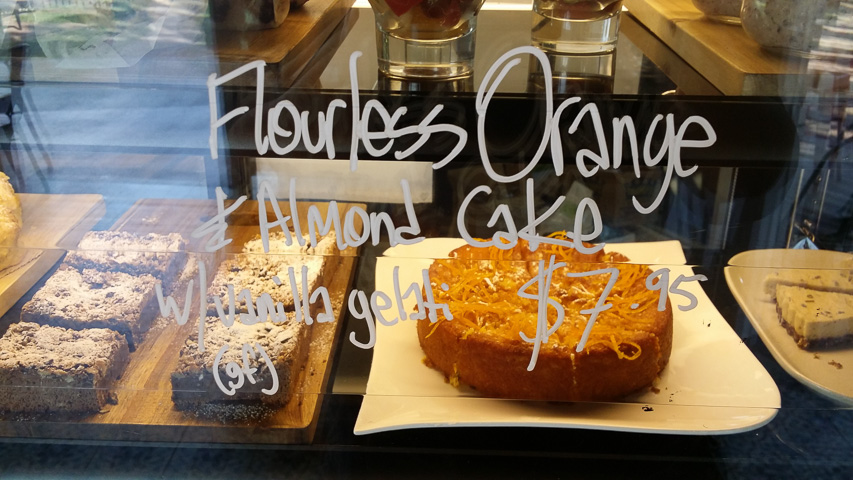 Flourless Orange
& Almond Cake
w/ vanilla gelati $7.95
(gf)